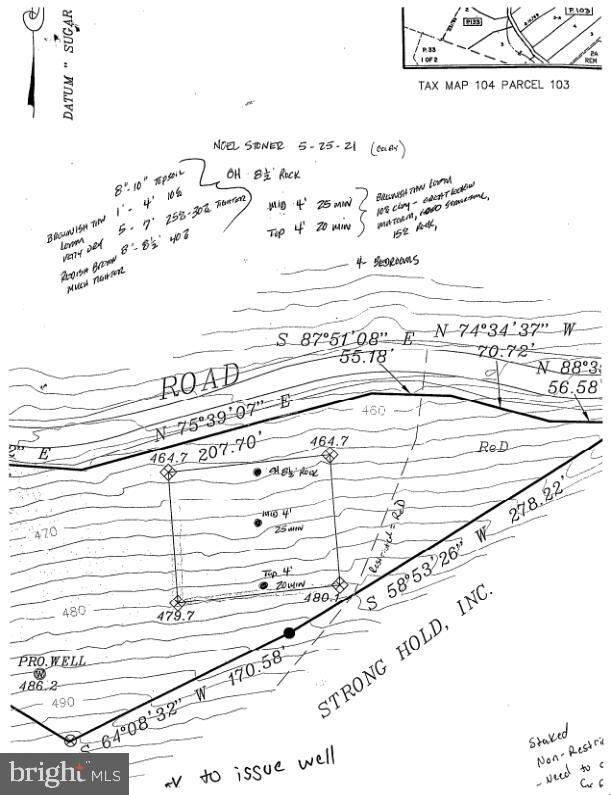 DATUM " SUGAR
P.133
P.103
P.33
1 OF 2
2A
REM
TAX MAP 104 PARCEL 103
NOEL STONER 5-25-21 (COLBY)
8"-10" TOPSOIL
BROWNISH TAN 1' - 4' 10%
LOAM 5 - 7' 25%-30% TIGHTER
VERY DRY
REDISH BROWN 8' - 8½' 40%
MUCH TIGHTER
OH 8½' ROCK
MID 4' 25 MIN
TOP 4' 20 MIN
BROWNISH TAN LOAM
10% CLAY - GREAT LOOKIN
MATERIAL, GOOD STRUCTURE,
15% ROCK,
4- BEDROOMS
S 87°51'08" E
55.18'
N 74°34'37" W
70.72'
N 88°3
56.58'
ROAD
N 75°39'07" E
207.70'
2" E
460
464.7
464.7
OH 8½' ROCK
ReD
MID 4'
25 MIN
470
Restricted = ReD
TOP 4'
20 MIN
480
479.7
480.1
S 58°53'26" W 278.22'
PRO.WELL
486.2
490
S 64°08'32" W 170.58'
STRONG HOLD, INC.
to issue well
Staked
Non-Restri
- Need to c
bright MLS